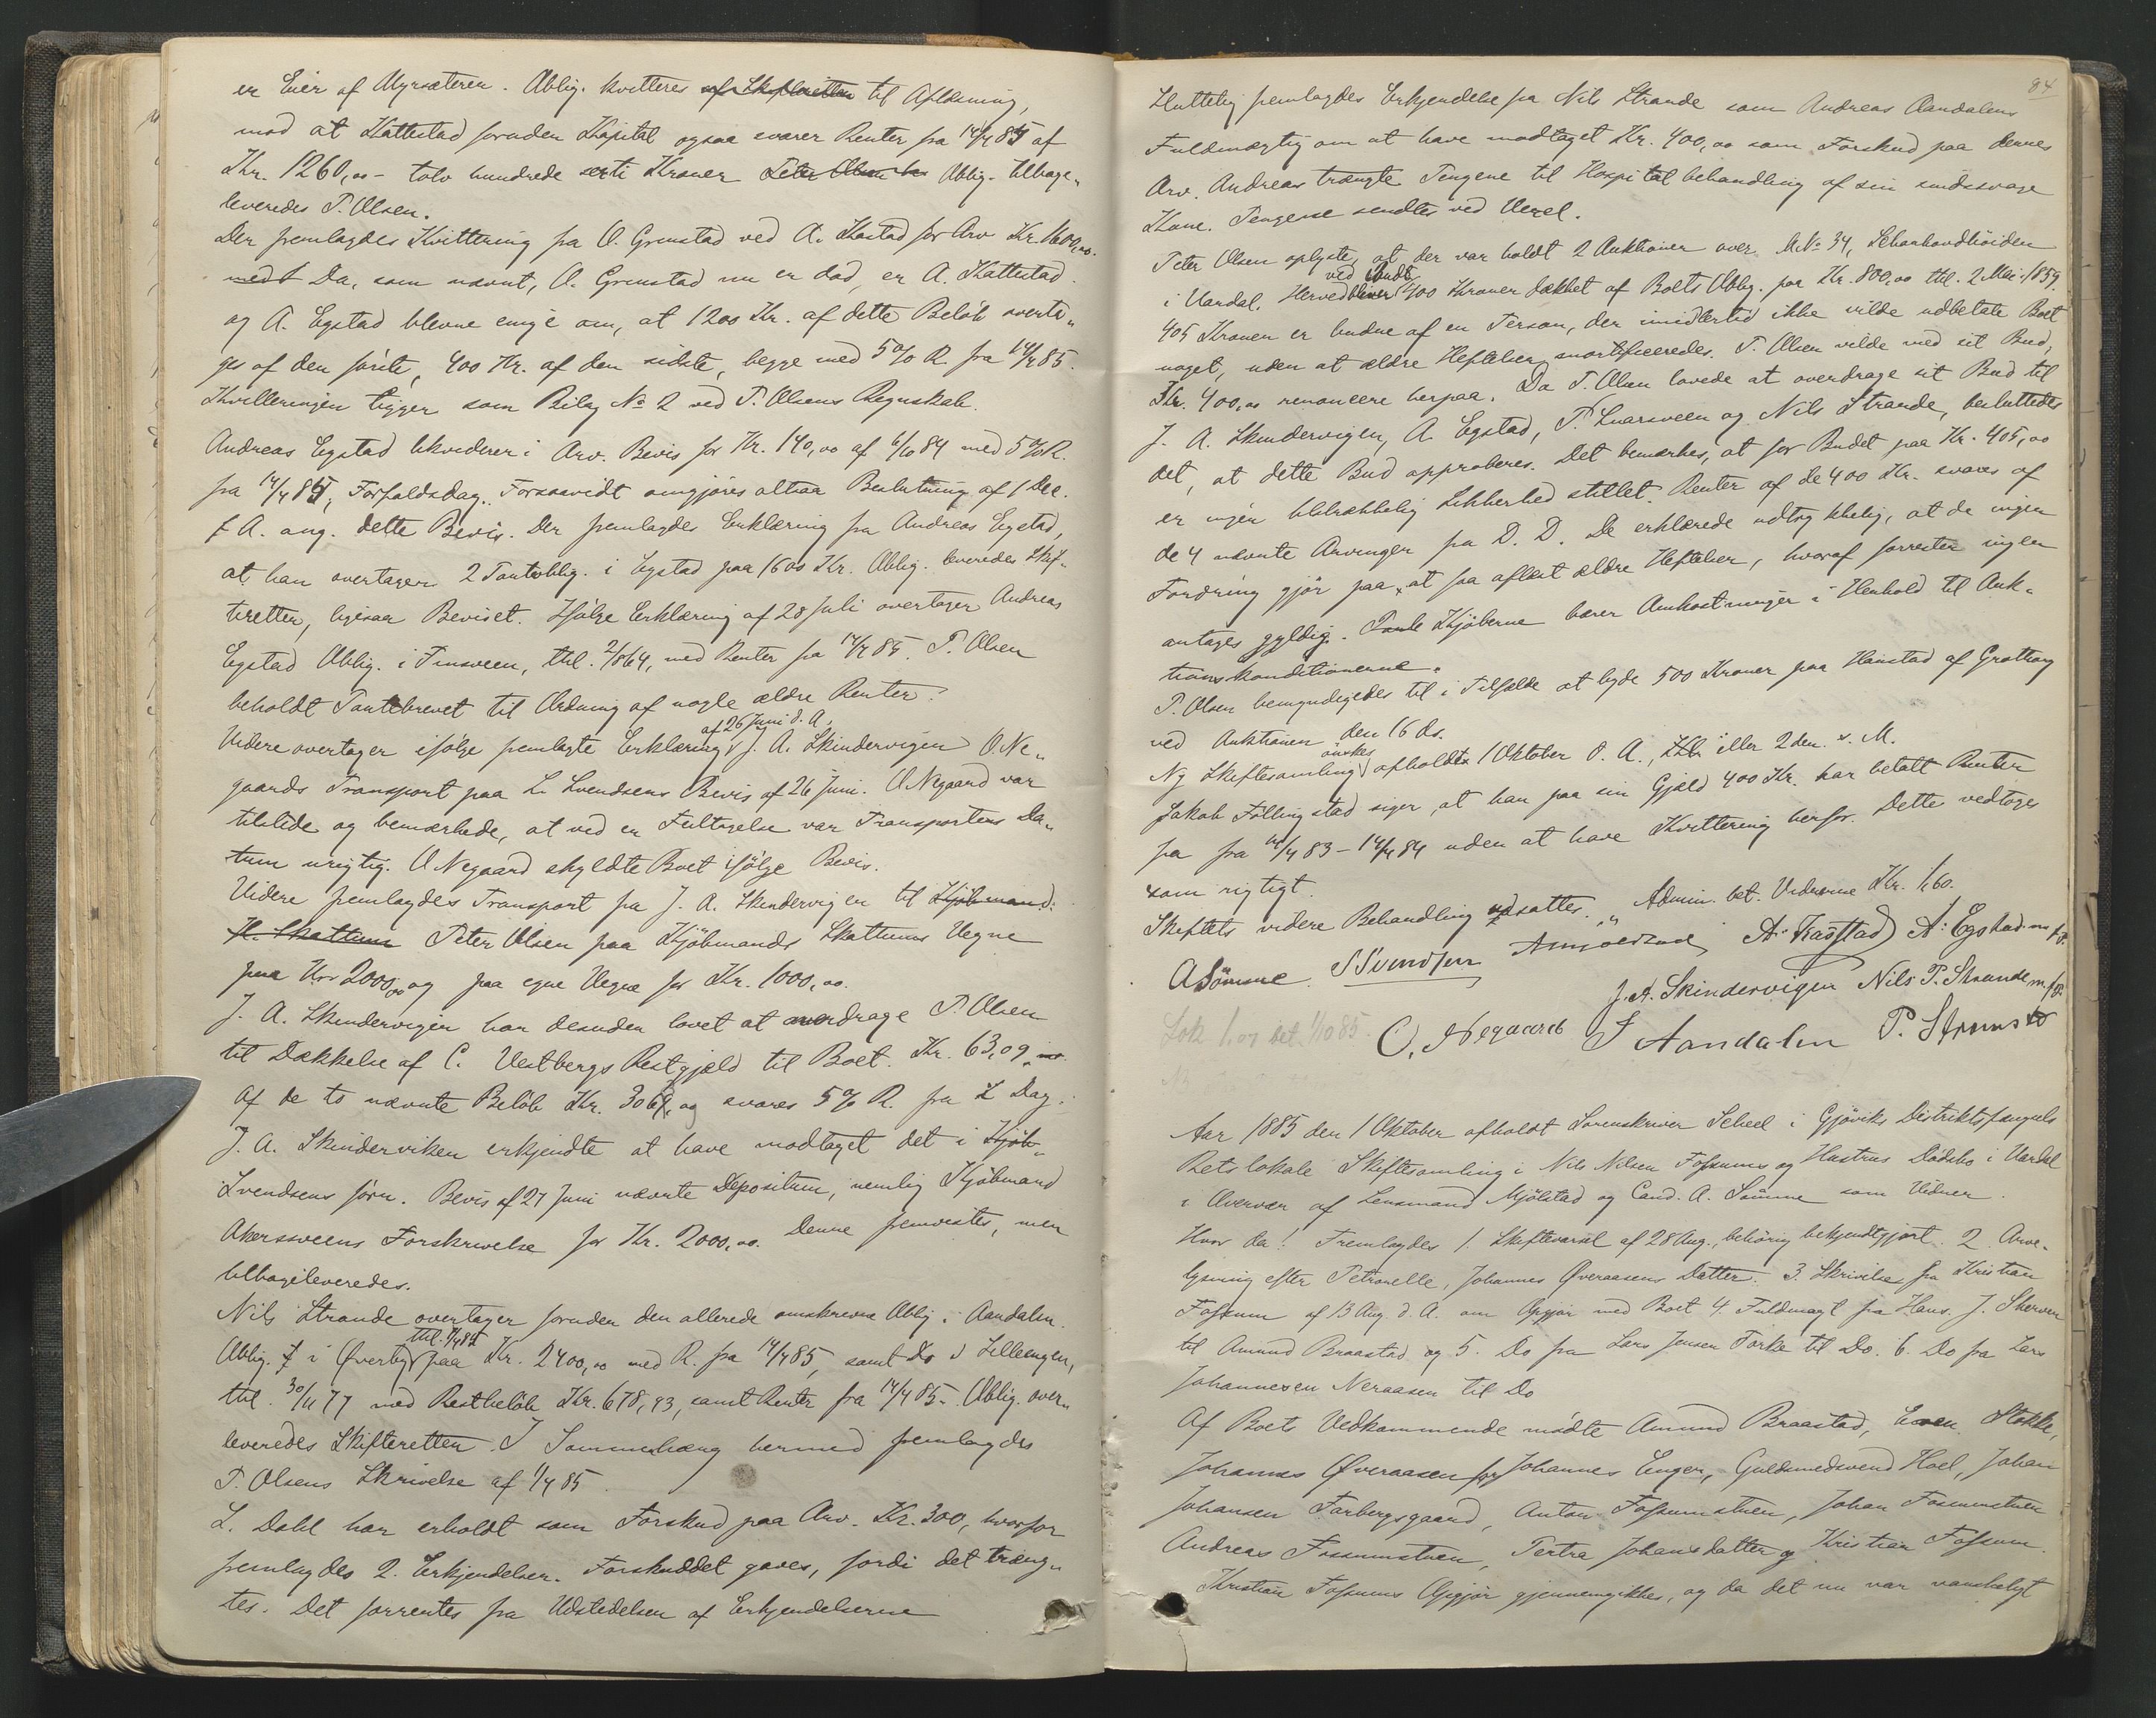 er Eier af Myrsæteren. Oblig. kvitteres af Skifteretten til Aflæsning,
mod at Kattestad foruden Kapital ogsaa svarer Renter fra 14/4 85 af
Kr. 1260,00 - tolv hundrede serti Kroner Peter Olsen Oblig. tilbage„
leveredes P. Olsen.
Der fremlagdes Kvittering fra O. Grenstad ved A. Kastad for Arv Kr. 1600,00.
Da, som nævnt, O. Grenstad nu er død, er A. Kattestad
og A. Egstad blevne enige om, at 1200 Kr. af dette Beløb overta„
ges af den første, 400 Kr. af den sidste, begge med 5% R. fra 14/4 85.
Kvitteringen ligger som Bilag No 2 ved P. Olsens Regnskab.
Andreas Egstad likviderer i Arv. Bevis for Kr. 140,00 af 6/10 84 med 5% R.
fra 14/4 85, Forfaldsdag. Forsaavidt omgjøres altsaa Beslutning af 1 Dec.
f. A. ang. dette Bevis. Der fremlagdes Erklæring fra Andreas Egstad,
at han overtager 2 Pantoblig. i Egstad paa 1600 Kr. Oblig. leveredes Skif„
teretten, ligesaa Beviset. Ifølge Erklæring af 28 Juli overtager Andreas
Egstad Oblig. i Finsveen, thl. 2/8 64, med Renter fra 14/4 85. P. Olsen
beholdt Pantebrevet til Ordning af nogle ældre Renter.
af 26 Juni d. A.
Videre overtager ifølge fremlagte Erklæring J. A. Skindervigen O. Ne„
gaards Transport paa L. Svendsens Bevis af 26 Juni. O Negaard var
tilstede og bemærkede, at ved en Feiltagelse var Transportens Da„
tum urigtig. O Negaard skyldte Boet ifølge Bevis.
Videre fremlagdes Transport fra J. A. Skindervigen til Kjøbmand
H. Skattum Peter Olsen paa Kjøbmands Skattums Vegne
paa Kr. 2000,00 og paa egne Vegne for Kr. 1000,00.
J. A. Skindervigen har desuden lovet at overdrage P. Olsen
til Dækkelse af C. Vestbergs Restgjæld til Boet. Kr. 63,09.
Af de to nævnte Beløb Kr. svares 5% R. fra D. Dag.
J. A. Skinderviken erkjendte at have modtaget det i Kjøb„
Svendsens førn. Bevis af 27 Juni nævnte Depositum, nemlig Kjøbmand
Akersveens Forskrivelse for Kr. 2000,00. Denne fremvistes, men
tilbageleveredes.
Nils Strande overtager foruden den allerede omskrevne Oblig i Aandalen
Oblig. i Øverby paa Kr. 2400,00 med R. fra 14/4 85, samt Do i Lilleengen,
thl. 30/11 77 med Restbeløb Kr. 678,93, samt Renter fra 14/4 85. Oblig. over„
leveredes Skifteretten. I Sammenhæng hermed fremlagdes
P. Olsens Skrivelse af 1/4 85.
L. Dahl har erholdt som Forskud paa Arv. Kr. 300, hvorfor
fremlagdes 2 Erkjendelser. Forskuddet gaves, fordi det træng„
tes. Det forrentes fra Udstedelsen af Erkjendelserne
84
Sluttelig fremlagdes Erkjendelse fra Nils Strande som Andreas Aandalens
Fuldmægtig om at have modtaget Kr. 400,00 som Forskud paa dennes
Arv. Andreas trængte Pengene til Hospitalbehandling af sin sindssvage
Kone. Pengene sendtes ved Vexel.
Peter Olsen oplyste, at der var holdt 2 Auktioner over M. No 34, Schanhovdhöiden
i Vardal. Herved bliver 400 Kroner dækket af Boets Oblig. paa Kr. 800,00 thl. 2 Mai 1859.
405 Kroner er budne af en Person, der imidlertid ikke vilde udbetale Boet
noget, uden at ældre Heftelser mortificeredes. P. Olsen vilde med sit Bud,
Kr. 400,00 renoncere herpaa. Da P. Olsen lovede at overdrage sit Bud til
J. A. Skindervigen, A. Egstad, P. Snarsveen og Nils Strande, besluttedes
det, at dette Bud approberes. Det bemærkes, at for Budet paa Kr. 405,00
er ingen tilstrækkelig Sikkerhed stillet. Renter af de 400 Kr. svares af
de 4 nævnte Arvinger fra D. D. De erklærede udtrykkelig, at de ingen
Fordring gjør paa, at faa aflæst ældre Heftelser, hvoraf forrester ingen
antages gyldig. Kjøberne bærer Omkostninger i Henhold til Auk„
tionskonditionerne.
P. Olsen bemyndigedes til i Tilfælde at byde 500 Kroner paa Hanstad af Grøttorg
ved Auktionen den 16 ds.
önskes
Ny Skiftesamling afholdt 1 Oktober D. A., eller 2den s. M.
Jakob Föllingstad siger, at han paa sin Gjæld 400 Kr. har betalt Renter
fra 14/4 83 - 14/4 84 uden at have Kvittering herfor. Dette vedtoges
som rigtigt.
Skiftets videre Behandling udsattes. „ Admin. bet. Vidnerne Kr. 1,60.
ASömme SSvendsen A. Kaßstad A. Egstad m.f.P.
J. A. Skindervigen Nils P. Strande m.f.P.
O. Negaard J Aandalen P.
Aar 1885 den 1 Oktober afholdt Sorenskriver Scheel i Gjøviks Distriktsfængsels
Retslokale Skiftesamling i Nils Nilsen Foßums og Hustrus Dødsbo i Vardal
i Overvær af Lensmand Mjölstad og Cand. A. Sömme som Vidner.
Hvor da: Fremlagdes 1. Skiftevarsel af 28 Aug., behörig bekjendtgjort. 2 Arve„
lysning efter Petronelle, Johannes Øveraasens Datter. 3. Skrivelse fra Kristian
Foßum af 13 Aug. d. A. om Opgjør med Boet 4. Fuldmagt fra Hans J. Skerven
til Amund Braastad og 5. Do fra Lars Jensen Torke til Do. 6. Do fra Lars
Johannesen Neraasen til Do
Af Boets Vedkommende mødte Amund Braastad, Even Stokke,
Johannes Øveraasen for Johannes Enger, Guldsmedsvend Hoel, Johan
Johansen Farbergsgaard, Anton Foßumstuen, Johan Fossumstuen
Andreas Fossumstuen, Pertra Johansdatter og Kristian Foßum.
Kristian Foßums Opgjør gjennemgikkes, og da det nu var vanskeligt